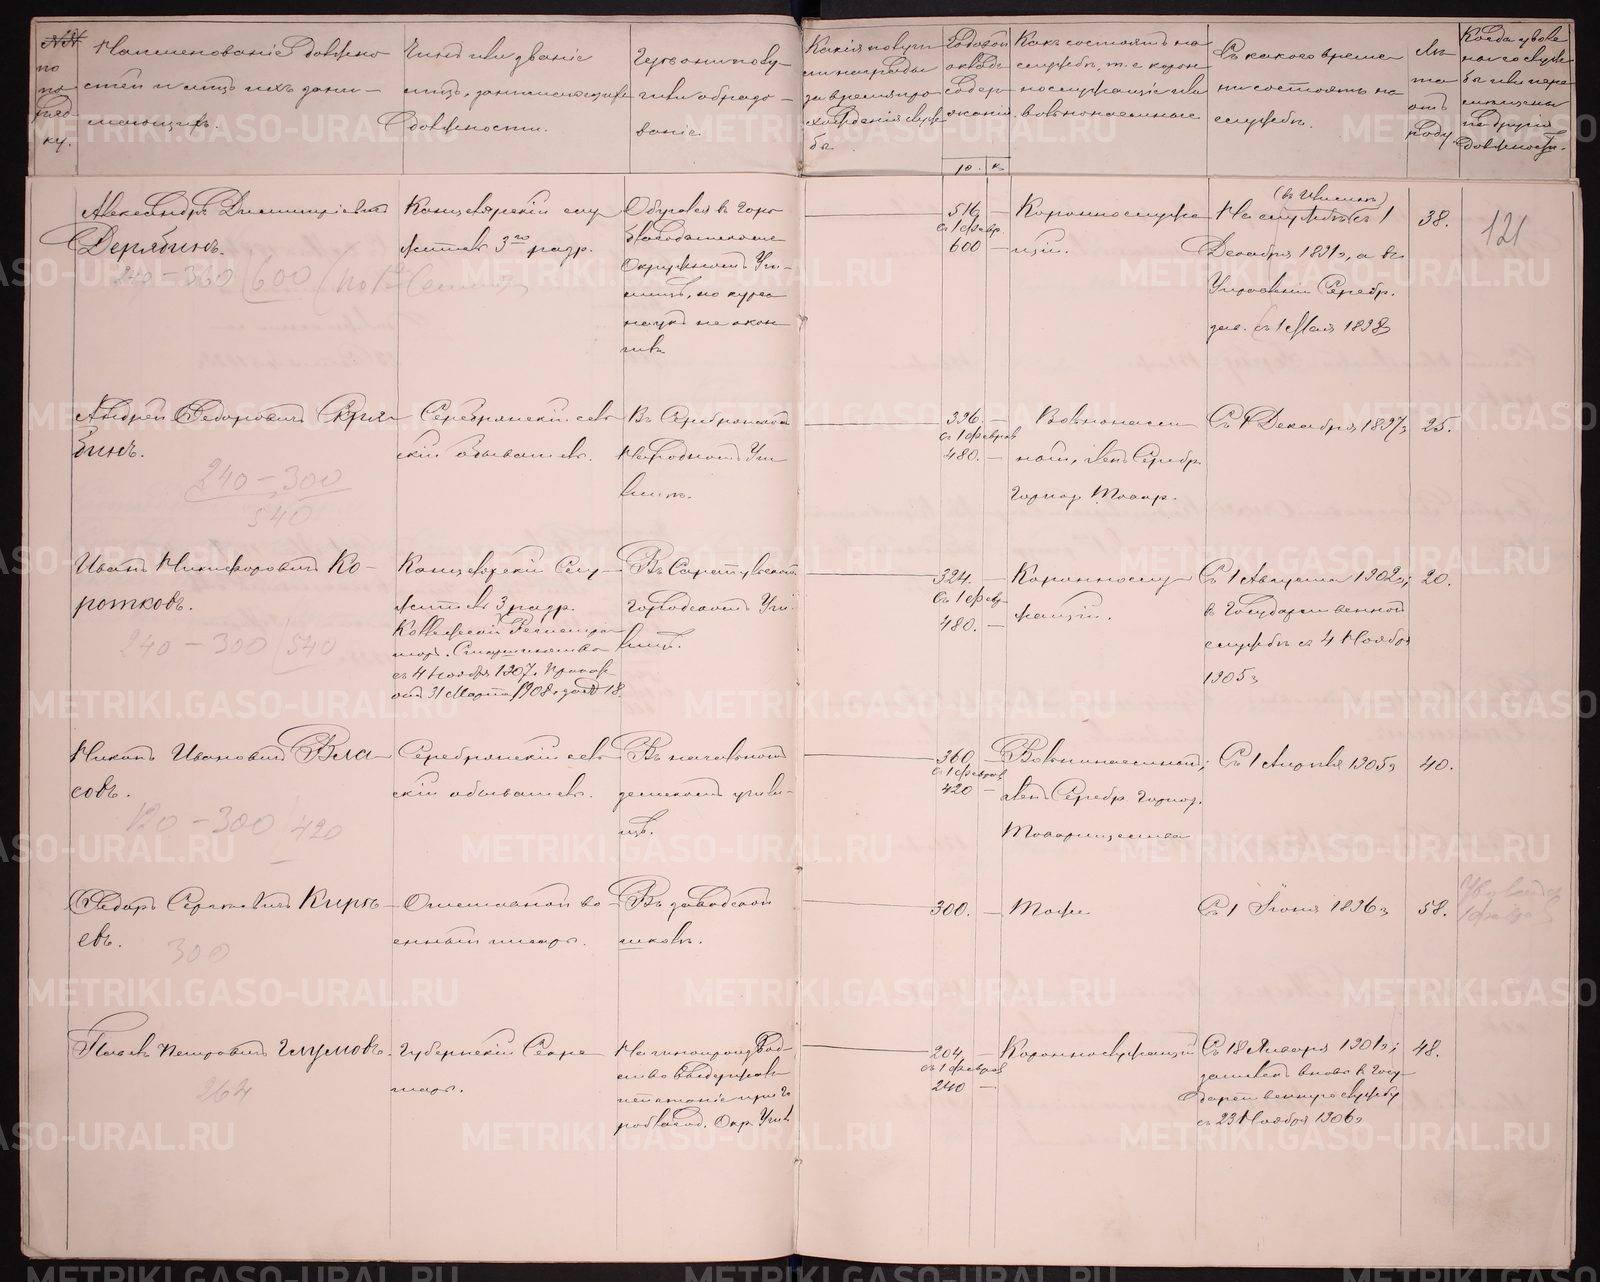 №№ по порядку.
Наименованіе должно-
стей и лицъ ихъ зани-
мающихъ.
Чинъ или званіе
лицъ, занимающихъ
должности.
Гдѣ воспиты-
образо-
ваніе.
Какія получи-
ли награды
за время про-
хожденія служ-
бы.
Годовой
окладъ
содер-
жанія.
р. к.
Какъ состоятъ на
службѣ, т. е. корон-
нослужащіе или
вольнонаемные
Съ какого време-
ни состоятъ на
службѣ.
Лѣ-
та
отъ
роду
Когда уволе-
ны со служ-
бы или пере-
мѣщены
на другія
должности.
121
Александръ Дмитріевичъ
Дерябинъ.
240-360 600
Канцелярскій слу-
житель 3го разр.
Обучался въ Горо-
благодатскомъ
Окружномъ Учи-
лищѣ, но курса
наукъ не окон-
чилъ
516
съ 1 февр.
600 —
Короннослужа-
щій.
На службѣ съ 1
Декабря 1891 г, а въ
Управленіи Серебр.
зав. съ 1 Мая 1898
38.
Андрей Федоровичъ Скря-
бинъ.
240-300
540
Серебрянскій сель-
скій обыватель.
Въ Серебрянскомъ
Народномъ Учи-
лищѣ.
396. —
съ 1 февраля
480. —
Вольнонаем-
ный, членъ Серебр.
Горноз. Товар.
Съ 1 Декабря 1897 г
25.
Иванъ Никифоровичъ Ко-
ротковъ.
240-300 540
Канцелярскій Слу-
житель 3 разр.
Коллежскій Регистра-
торъ. Старшинство
съ 4 Ноября 1907 г. Приказ
отъ 31 Марта 1908 г. за № 18.
Въ Сарапульскомъ
Городскомъ Учи-
лищѣ.
324. —
съ 1 февр.
480. —
Короннослу-
жащій.
Съ 1 Августа 1902 г;
въ Государственной
службѣ съ 4 Ноября
1905 г
20.
Никонъ Ивановичъ Вла-
совъ.
120-300 420
Серебрянскій сель-
скій обыватель.
Въ начальномъ
земскомъ учили-
щѣ.
360
съ 1 февраля
420 —
Вольнонаемный;
членъ Серебр Горноз.
Товарищества
Съ 1 Апрѣля 1905 г
40.
Федоръ Сергѣевичъ Кирѣ-
евъ.
300
Отставной во-
енный писарь.
Въ заводской
школѣ.
300. —
Тоже
Съ 1 Іюня 1896 г
58.
Павелъ Петровичъ Глумовъ.
264
Губернскій Секре-
тарь.
На чинопроизвод-
ство выдержалъ
испытаніе при Го-
роблагод. Окр. Учил
204. —
съ 1 февраля
240 —
Короннослужащій
Съ 18 Января 1901 г;
зачисленъ вновь въ Госу-
дарственную службу
съ 23 Ноября 1906 г
48.
METRIKI.GASO-URAL.RU